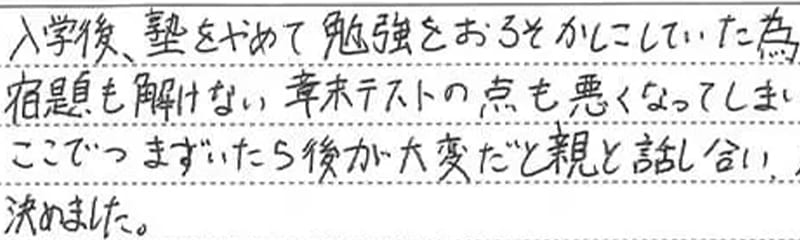 入学後、塾をやめて勉強をおろそかしこしていた為
宿題も解けない章末テストの点も悪くなってしまい
ここでつまずいたら後が大変だと親と話し合い、
決めました。